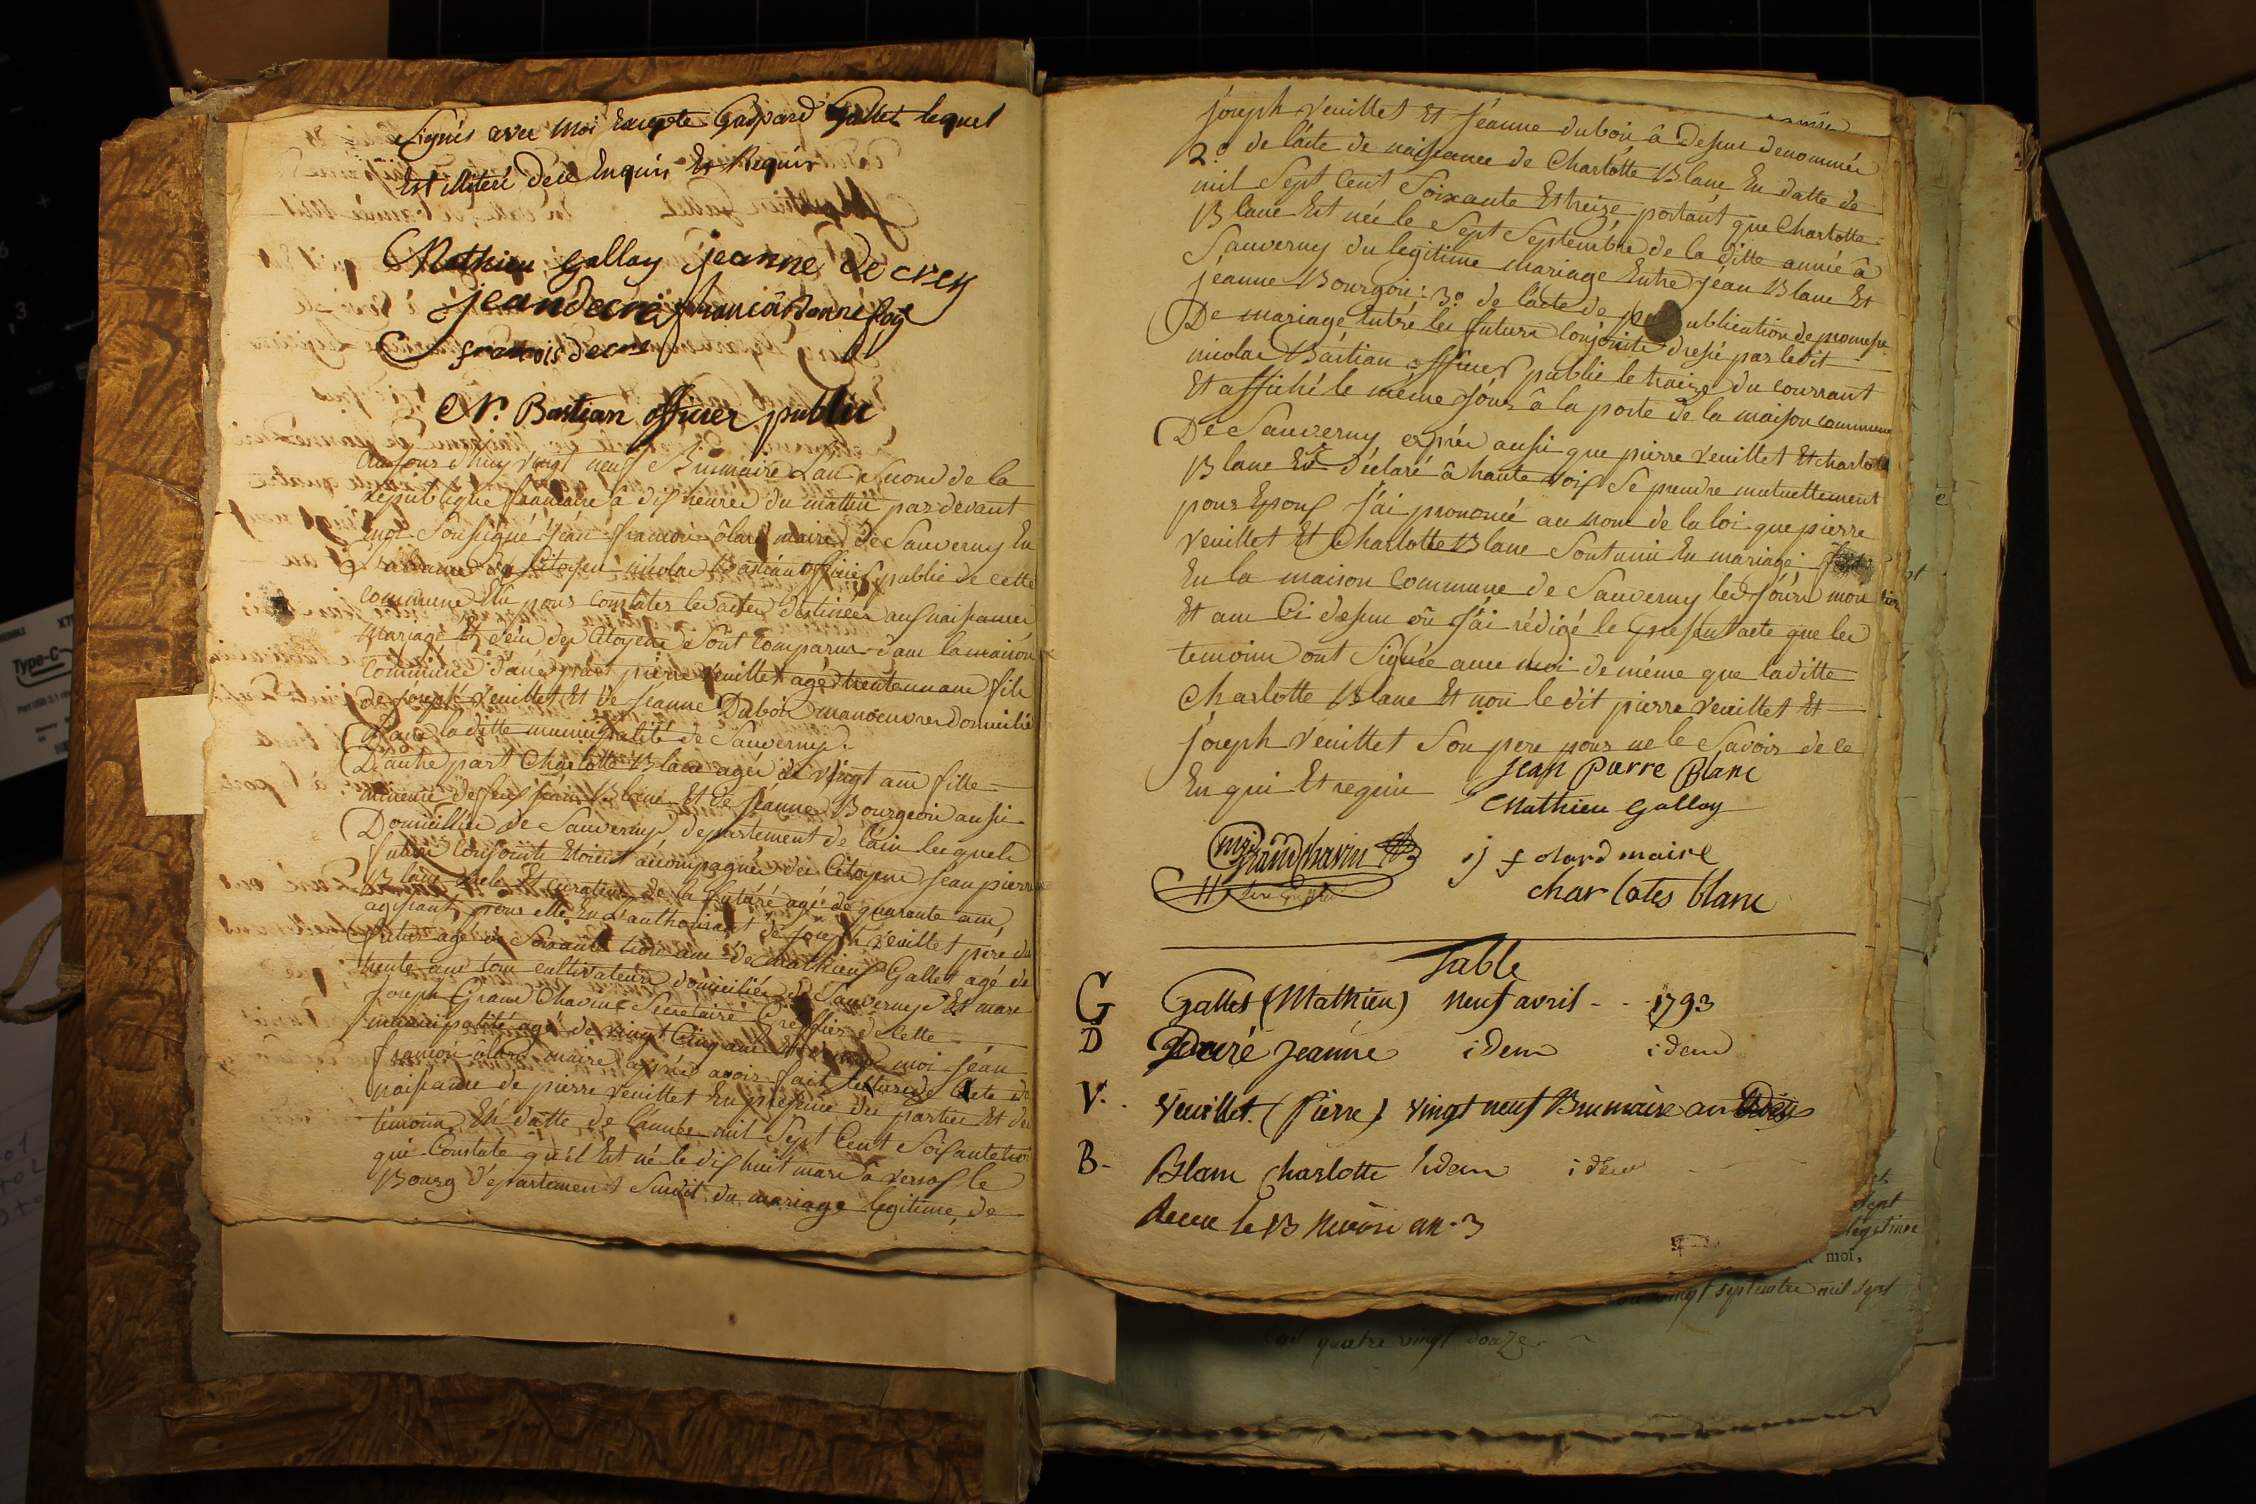 Signés avec moi Excepte Gaspard Gallet lequel
Est illiteré de ce Enquis Et Requis
Mathieu gallay jeanne decrey
jean decré francois Bonnefoy
francois decré
N. Bastian officier public
Aujourd'huy vingt neuf Brumaire L'an second de la
Republique francaise â dix heures du mattin pardevant
moi soussigné Jean francois ôlard maire de Sauverny En
L'absence du Citoyen nicolas Bastian officier public de cette
commune Elu pour constater les actes destinées aux naissances
Mariage Et deces des Citoyens sont comparus dans la maison
commune d'une part pierre Veuillet agé trente un ans fils
de joseph Veuillet Et de jeanne Dubois manoeuvre domicilié
dans laditte municipalité de Sauverny.
D'autre part Charlotte Blanc agée de vingt ans fille
mineure de feu jean Blanc Et de jeanne Bourgeois aussi
Domicilliée de Sauverny, departement de l'ain lesquels
futurs conjoints Etoient accompagnés des Citoyens jean pierre
Blanc Et curateur de la future agé de quarante ans,
agissant pour elle En L'authorisant de joseph Veuillet pere du
futur agé de soixante trois ans de mathieu Gallet agé de
trente ans tous cultivateurs domiciliés de Sauverny Et marc
joseph Grand Chavin Secretaire Greffier de cette
municipalité agé de vingt Cinq ans Et moi jean
francois ôlard maire après avoir fait lecture de l'acte de
naissance de pierre Veuillet En presence des parties Et des
temoins En datte de l'année mil Sept Cent Soixante trois
qui Constate qu'il Est né le dix huit mars à versoix le
Bourg departement Susdit du mariage legitime, de
joseph Veuillet Et jeanne dubois â dessus denommés
2º de l'acte de naissance de Charlotte Blanc En datte de
mil Sept Cent Soixante Etreize portant que Charlotte
Blanc Est née le Sept Septembre de la ditte année â
Sauverny du legitime mariage Entre jean Blanc Et
jeanne Bourgois: 3º de lacte de publication de promesse
De mariage Entre les futurs Conjoints dressé par ledit
nicolas Bastian officier public le traize du courrant
Et affiché le même jour â la porte de la maison commune
De Sauverny après aussi que pierre Veuillet Et charlotte
Blanc Eut déclaré â haute voix Se prendre mutuellement
pour Epoux j'ai prononcé au nom de la loi que pierre
Veuillet Et Charlotte Blanc Sont unis En mariage
En la maison Commune de Sauverny les jours mois
Et ans Ci dessus où j'ai rédigé le present acte que les
temoins ont Signée avec moi de même que laditte
Charlotte Blanc Et non le dit pierre Veuillet Et
joseph Veuillet Son pere pour ne le Savoir de ce
Enqui Et requis
jean Pierre Blanc
Mathieu gallay
mj grandchavin
j f olard maire
char lotes blanc
Table
G Gallet (Mathieu) neuf avril - - 1793
D Decré jeanne idem idem
V. Veuillet (Pierre) vingt neuf Brumaire an
B- Blanc Charlotte idem idem
Receu le 13 Nivôse an 3
moi,
vingt septembre mil sept
quatre vingt douze